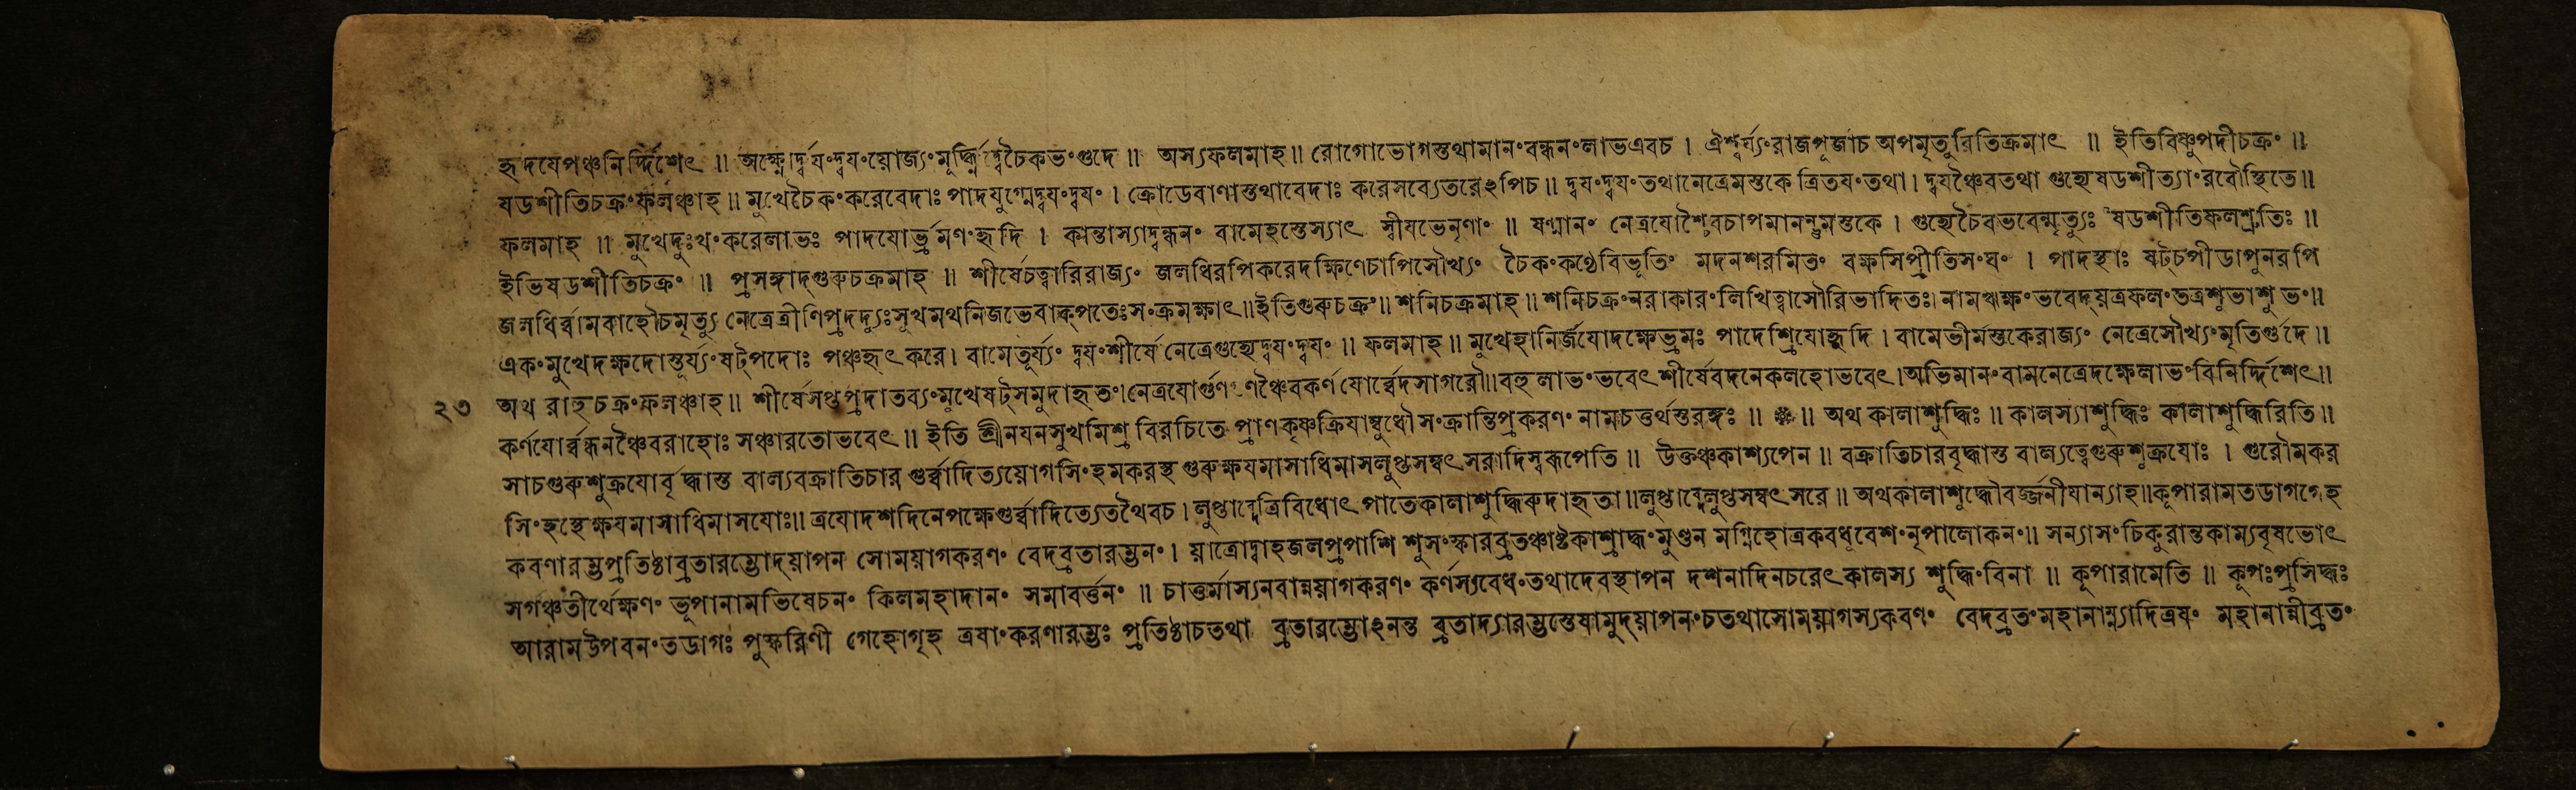 হৃদযেপঞ্চনির্দ্দিশেৎ ॥ অক্ষ্ণোর্দ্বয়ংদ্বযংয়োজ্যংমূর্দ্ধ্নিদ্বেচৈকভংগুদে ॥ অস্যফলমাহ ॥ রোগোভোগস্তথামানংবন্ধনংলাভএবচ । ঐশ্বর্য্যংরাজপূজাচ অপমৃত্যুরিতিক্রমাৎ ॥ ইতিবিষ্ণুপদীচক্রং ॥
ষডশীতিচক্রংফলঞ্চাহ ॥ মুখেচৈকংকরেবেদাঃ পাদযুগ্মেদ্বযংদ্বযং । ক্রোডেবাণাস্তথাবেদাঃ করেসব্যেতরেঽপিচ ॥ দ্বযংদ্বযংতথানেত্রেমস্তকে ত্রিতযংতথা । দ্বযঞ্চৈবতথা গুহ্যেষডশীত্যাংরবৌস্থিতে ॥
ফলমাহ ॥ মুখেদুঃখংকরেলাভঃ পাদযোর্ভ্রমণংহৃদি । কান্তাস্যাদ্বন্ধনং বামেহস্তেস্যাৎ স্বীযভেনৃণাং ॥ ষণ্মানং নেত্রযোশ্চৈবচাপমানন্তুমস্তকে । গুহ্যেচৈবভবেন্মৃত্যুঃ ষডশীতিফলশ্রুতিঃ ॥
ইতিষডশীতিচক্রং ॥ প্রসঙ্গাদ্গুরুচক্রমাহ ॥ শীর্ষেচত্বারিরাজ্যং জলধিরপিকরেদক্ষিণেচাপিসৌখ্যং চৈকংকণ্ঠেবিভূতিং মদনশরমিতং বক্ষসিপ্রীতিসংঘং । পাদস্থাঃ ষট্চপীডাপুনরপি
জলধির্ব্বামবাহৌচমৃত্যু নেত্রেত্রীণিপ্রদদ্যুঃসুখমথনিজভেবাক্পতেঃসংক্রমক্ষাৎ ॥ ইতিগুরুচক্রং ॥ শনিচক্রমাহ ॥ শনিচক্রংনরাকারংলিখিত্বাসৌরিভাদিতঃ । নামঋক্ষংভবেদ্যত্রফলংতত্রশুভাশুভং ॥
একংমুখেদক্ষদোস্তূর্য্যংষট্পদোঃ পঞ্চহৃৎকরে । বামেতূর্য্যং দ্বযংশীর্ষে নেত্রেগুহ্যেদ্বযংদ্বযং ॥ ফলমাহ ॥ মুখেহানির্জযোদক্ষেভ্রমঃ পাদেশ্রিযোহৃদি । বামেভীর্মস্তকেরাজ্যং নেত্রেসৌখ্যংমৃতির্গুদে ॥
২৩ অথ রাহুচক্রংফলঞ্চাহ ॥ শীর্ষেসপ্তপ্রদাতব্যংমুখেষট্সমুদাহৃতং । নেত্রযোর্গুণ ণঞ্চৈবকর্ণযোর্ব্বেদসাগরৌ ॥ বহুলাভংভবেৎ শীর্ষেবদনেকলহোভবেৎ । অভিমানংবামনেত্রেদক্ষেলাভংবিনির্দ্দিশেৎ ॥
কর্ণযোর্ব্বন্ধনঞ্চৈবরাহোঃ সঞ্চারতোভবেৎ ॥ ইতি শ্রীনযনসুখমিশ্র বিরচিতে প্রাণকৃষ্ণক্রিযাম্বুধৌসংক্রান্তিপ্রকরণং নামচতুর্থস্তরঙ্গঃ ॥ ॥ অথ কালাশুদ্ধিঃ ॥ কালস্যাশুদ্ধিঃ কালাশুদ্ধিরিতি ॥
সাচগুরুশুক্রযোবৃদ্ধাস্ত বাল্যবক্রাতিচার গুর্ব্বাদিত্যয়োগসিংহমকরস্থ গুরুক্ষযমাসাধিমাসলুপ্তসম্বৎসরাদিস্বরূপেতি ॥ উক্তঞ্চকাশ্যপেন ॥ বক্রাতিচারবৃদ্ধাস্ত বাল্যত্বেগুরুশুক্রযোঃ । গুরৌমকর
সিংহস্থেক্ষযমাসাধিমাসযোঃ ॥ ত্রযোদশদিনেপক্ষেগুর্ব্বাদিত্যেতথৈবচ । লুপ্তাব্দেত্রিবিধোৎপাতেকালাশুদ্ধিরুদাহৃতা ॥ লুপ্তাব্দেলুপ্তসম্বৎসরে ॥ অথকালাশুদ্ধৌবর্জ্জনীযান্যাহ ॥ কূপারামতডাগগেহ
করণারম্ভপ্রতিষ্ঠাব্রতারম্ভোদ্য়াপন সোময়াগকরণং বেদব্রতারম্ভনং । য়াত্রোদ্বাহজলপ্রপাশি শুসংস্কারব্রতঞ্চাষ্টকাশ্রাদ্ধংমুণ্ডন মগ্নিহোত্রকবধূবেশংনৃপালোকনং ॥ সন্যাসংচিকুরান্তকাম্যবৃষভোৎ
সগঞ্চতীর্থেক্ষণং ভূপানামভিষেচনং কিলমহাদানং সমাবর্ত্তনং ॥ চাতুর্মাস্যনবান্নয়াগকরণং কর্ণস্যবেধংতথাদেবস্থাপন দশনাদিনচরেৎকালস্য শুদ্ধিংবিনা ॥ কূপারামেতি ॥ কূপঃপ্রসিদ্ধঃ
আরামউপবনংতডাগঃ পুষ্করিণী গেহোগৃহ ত্রষাংকরণারম্ভঃ প্রতিষ্ঠাচতথা ব্রতারম্ভোঽনন্ত ব্রতাদ্যারম্ভস্তেষামুদ্য়াপনংচতথাসোময়াগস্যকরণং বেদব্রতংমহানাম্ন্যাদিত্রযং মহানাম্নীব্রতং